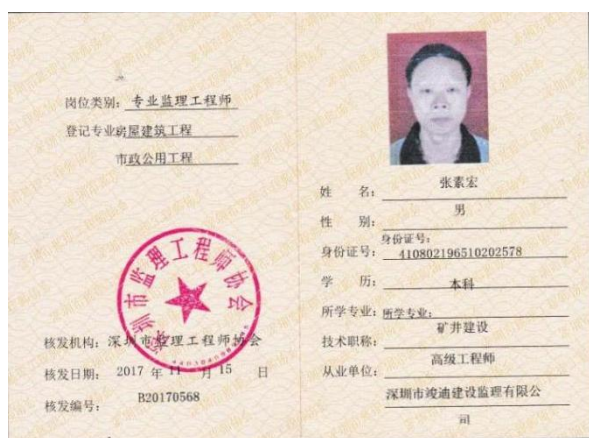 岗位类别：专业监理工程师
登记专业房屋建筑工程
市政公用工程
深圳市监理工程师协会
核发机构：深圳市监理工程师协会
核发日期：2017 年 11 月 15 日
核发编号：B20170568
姓 名：张素宏
性 别：男
身份证号：
身份证号：410802196510202578
学 历：本科
所学专业：所学专业：
矿井建设
技术职称：
高级工程师
从业单位：
深圳市竣迪建设监理有限公
司